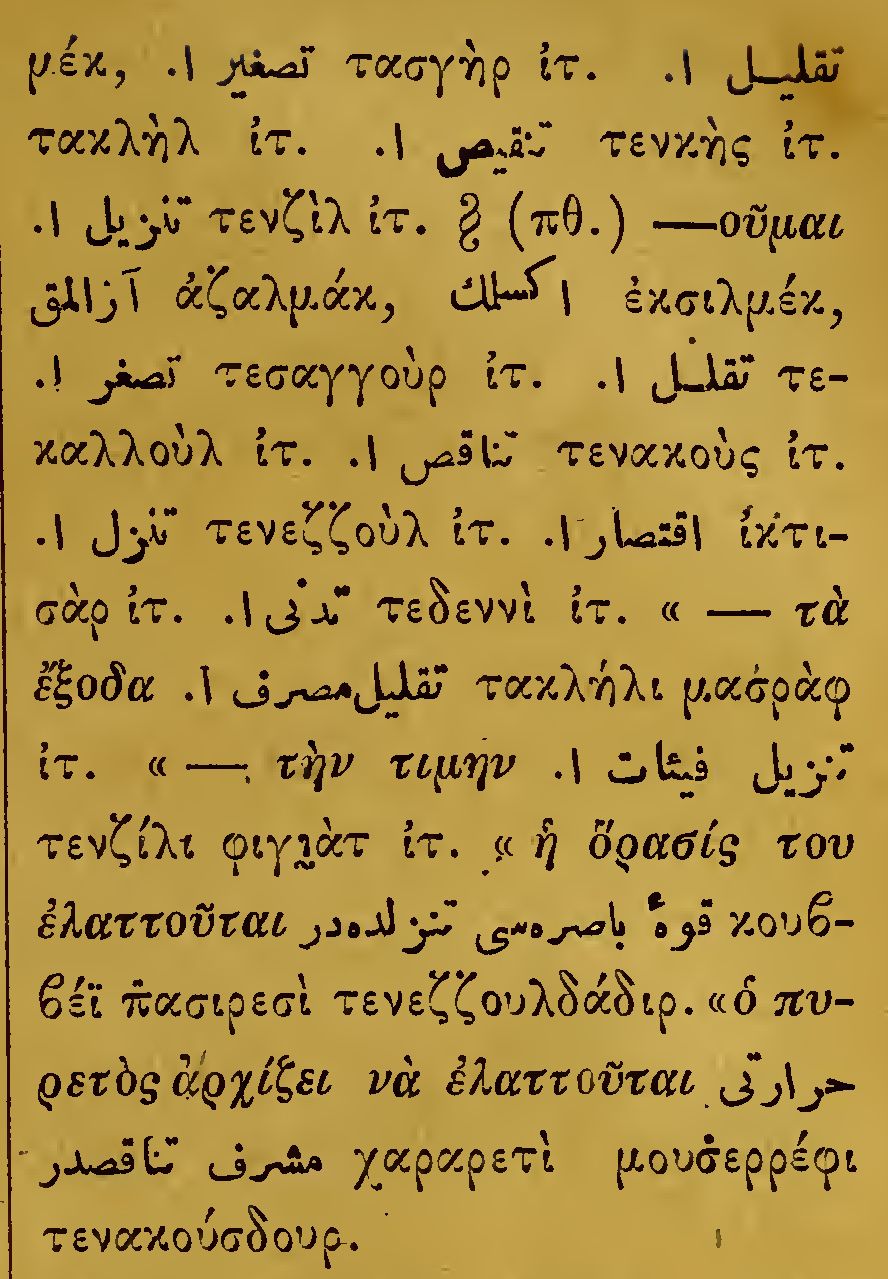 μέκ, تصغیر ا. τασγὴρ ἰτ. تقلیل ا.
τακλὴλ ἰτ. تنقیص ا. τενκὴς ἰτ.
تنزیل ا. τενζὶλ ἰτ. § (πθ.) —οῦμαι
آزالمق ἀζαλμάκ, اكسلمك ἐκσιλμέκ,
تصغر ا. τεσαγγοὺρ ἰτ. تقلل ا. τε-
καλλοὺλ ἰτ. تناقص ا. τενακοὺς ἰτ.
تنزل ا. τενεζζοὺλ ἰτ. اقتصار ا. ἰκτι-
σὰρ ἰτ. تدنی ا. τεδεννὶ ἰτ. « — τὰ
ἔξοδα تقلیل مصرف ا. τακλήλι μασ̇ρὰφ
ἰτ. « —, τὴν τιμὴν تنزیل فیئات ا.
τενζίλι φιγιὰτ ἰτ. « ἡ ὅρασίς του
ἐλαττοῦται قوهٔ باصره‌سی تنزلده‌در κουβ-
βέϊ π̇ασιρεσὶ τενεζζουλδάδιρ. «ὁ πυ-
ρετὸς ἀρχίζει νὰ ἐλαττοῦται حرارتی
مشرف تناقصدر χαραρετὶ μουσ̇ερρέφι
τενακούσδουρ.